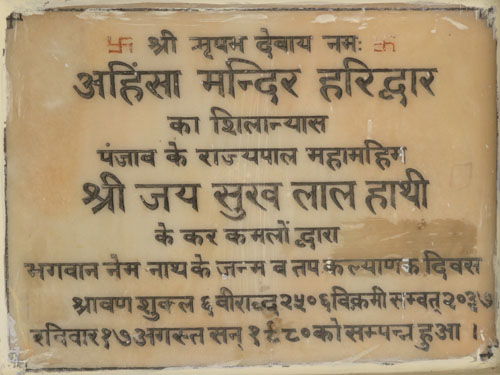 卐 श्री ऋषभ देवाय नमः 卐
अहिंसा मन्दिर हरिद्वार
का शिलान्यास
पंजाब के राज्यपाल महामहिम
श्री जय सुख लाल हाथी
के कर कमलों द्वारा
भगवान नेम नाथ के जन्म व तप कल्याणक दिवस
श्रावण शुक्ल ६ वीराब्द २५०६ विक्रमी सम्वत् २०३७
रविवार १७ अगस्त सन् १९८० को सम्पन्न हुआ ।